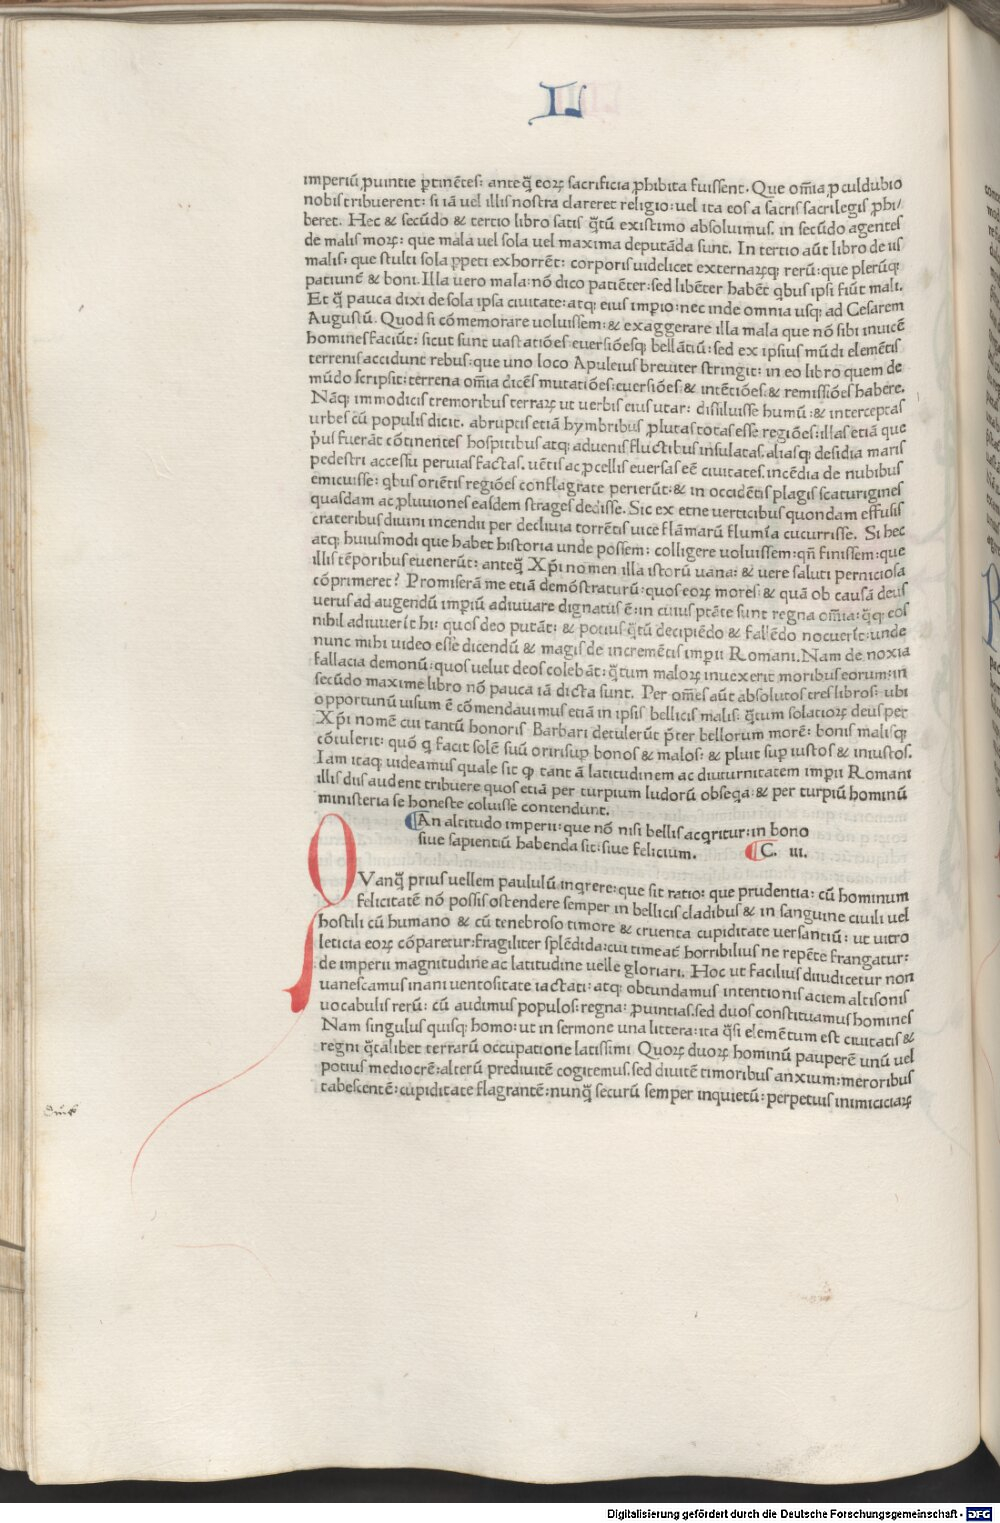 L
imperiū ꝓuintie ꝑtinētes: anteq̄ eoꝝ sacrificia ꝓhibita fuissent. Que om̄ia ꝓculdubio
nobis tribuerent: si iā uel illis nostra clareret religio: uel ita eos a sacris sacrilegis ꝓhi/
beret. Hec & secūdo & tertio libro satis q̄tū existimo absoluimus. in secūdo agentes
de malis moꝝ: que mala uel sola uel maxima deputāda sunt. In tertio aūt libro de iis
malis: que stulti sola ꝑpeti exhorrēt: corporis uidelicet externaꝝq; rerū: que pleruq;
patiunt̄ & boni. Illa uero mala: nō dico patiēter: sed libēter habēt qbus ipsi fiūt mali.
Et q̄ pauca dixi de sola ipsa ciuitate: atq; eius imꝑio: nec inde omnia usq; ad Cesarem
Augustū. Quod si cōmemorare uoluissem: & exaggerare illa mala que nō sibi inuicē
homines faciūt: sicut sunt uastatiōes euersiōesq; bellātiū: sed ex ipsius mūdi elemētis
terrenis accidunt rebus: que uno loco Apuleius breuiter stringit: in eo libro quem de
mūdo scripsit: terrena om̄ia dicēs mutatiōes: euersiōes: & intētiōes: & remissiōes habere.
Nāq; immodicis tremoribus terraꝝ ut uerbis eius utar: dissiluisse humū: & interceptas
urbes cū populis dicit. abruptis etiā hymbribus ꝓlutas totas esse regiōes: illas etiā que
p̄us fuerāt cōtinentes hospitibus atq; aduenis fluctibus insulatas. alias q; desidia maris
pedestri accessu peruias factas. uētis ac ꝓcellis euersas eē ciuitates. incēdia de nubibus
emicuisse: qbus oriētis regiōes conflagrate perierūt: & in occidētis plagis scaturigines
quasdam ac ꝓluuiones easdem strages dedisse. Sic ex etne uerticibus quondam effusis
crateribus diuini incendii per decliuia torrētis uice flāmarū flumīa cucurrisse. Si hec
atq; huiusmodi que habet historia unde possem: colligere uoluissem: qn̄ finissem: que
illis tēporibus euenerūt: anteq̄ Xp̄i nomen illa istorū uana: & uere saluti perniciosa
cōprimeret? Promiserā me etiā demōstraturū: quos eoꝝ mores: & quā ob causā deus
uerus ad augendū imꝑiū adiuuare dignatus ē: in cuius ptāte sunt regna om̄ia: q̄q; eos
nihil adiuuerīt hi: quos deo putāt: & potius q̄tū decipiēdo & fallēdo nocuerīt: unde
nunc mihi uideo esse dicendū & magis de incremētis imꝑii Romani. Nam de noxia
fallacia demonū: quos uelut deos colebāt: q̄tum maloꝝ inuexerit moribus eorum: in
secūdo maxime libro nō pauca iā dicta sunt. Per om̄es aūt absolutos tres libros: ubi
opportunū uisum ē cōmendauimus etiā in ipsis bellicis malis: q̄tum solatioꝝ deus per
Xp̄i nomē cui tantū honoris Barbari detulerūt p̄ter bellorum morē: bonis malisq;
cōtulerit: quō q facit solē suū oriri suꝑ bonos & malos: & pluit suꝑ iustos & iniustos.
Iam itaq; uideamus quale sit ꝙ tant ā latitudinem ac diuturnitatem imꝑii Romani
illis diis audent tribuere quos etiā per turpium ludorū obseqa: & per turpiū hominū
ministeria se honeste coluisse contendunt.
An altitudo imperii: que nō nisi bellis acqritur: in bono
siue sapientiū habenda sit: siue felicium. C. iii.
QVanq̄ prius uellem paululū inqrere: que sit ratio: que prudentia: cū hominum
felicitatē nō possis ostendere semper in bellicis cladibus & in sanguine ciuili uel
hostili cū humano & cū tenebroso timore & cruenta cupiditate uersantiū: ut uitro
leticia eoꝝ cōparetur: fragiliter splēdida: cui timeat̄ horribilius ne repēte frangatur:
de imperii magnitudine ac latitudine uelle gloriari. Hoc ut facilius diiudicetur non
uanescamus inani uentositate iactati: atq; obtundamus intentionis aciem altisonis
uocabulis rerū: cū audimus populos: regna: ꝓuintias. sed duos constituamus homines
Nam singulus quisq; homo: ut in sermone una littera: ita q̄si elemētum est ciuitatis &
regni q̄talibet terrarū occupatione latissimi. Quoꝝ duoꝝ hominū pauperē unū uel
potius mediocrē: alterū prediuitē cogitemus. sed diuitē timoribus anxium: meroribus
tabescentē: cupiditate flagrantē: nunq̄ securū semper inquietū: perpetuis inimiciciaꝝ
Digitalisierung gefördert durch die Deutsche Forschungsgemeinschaft - DFG